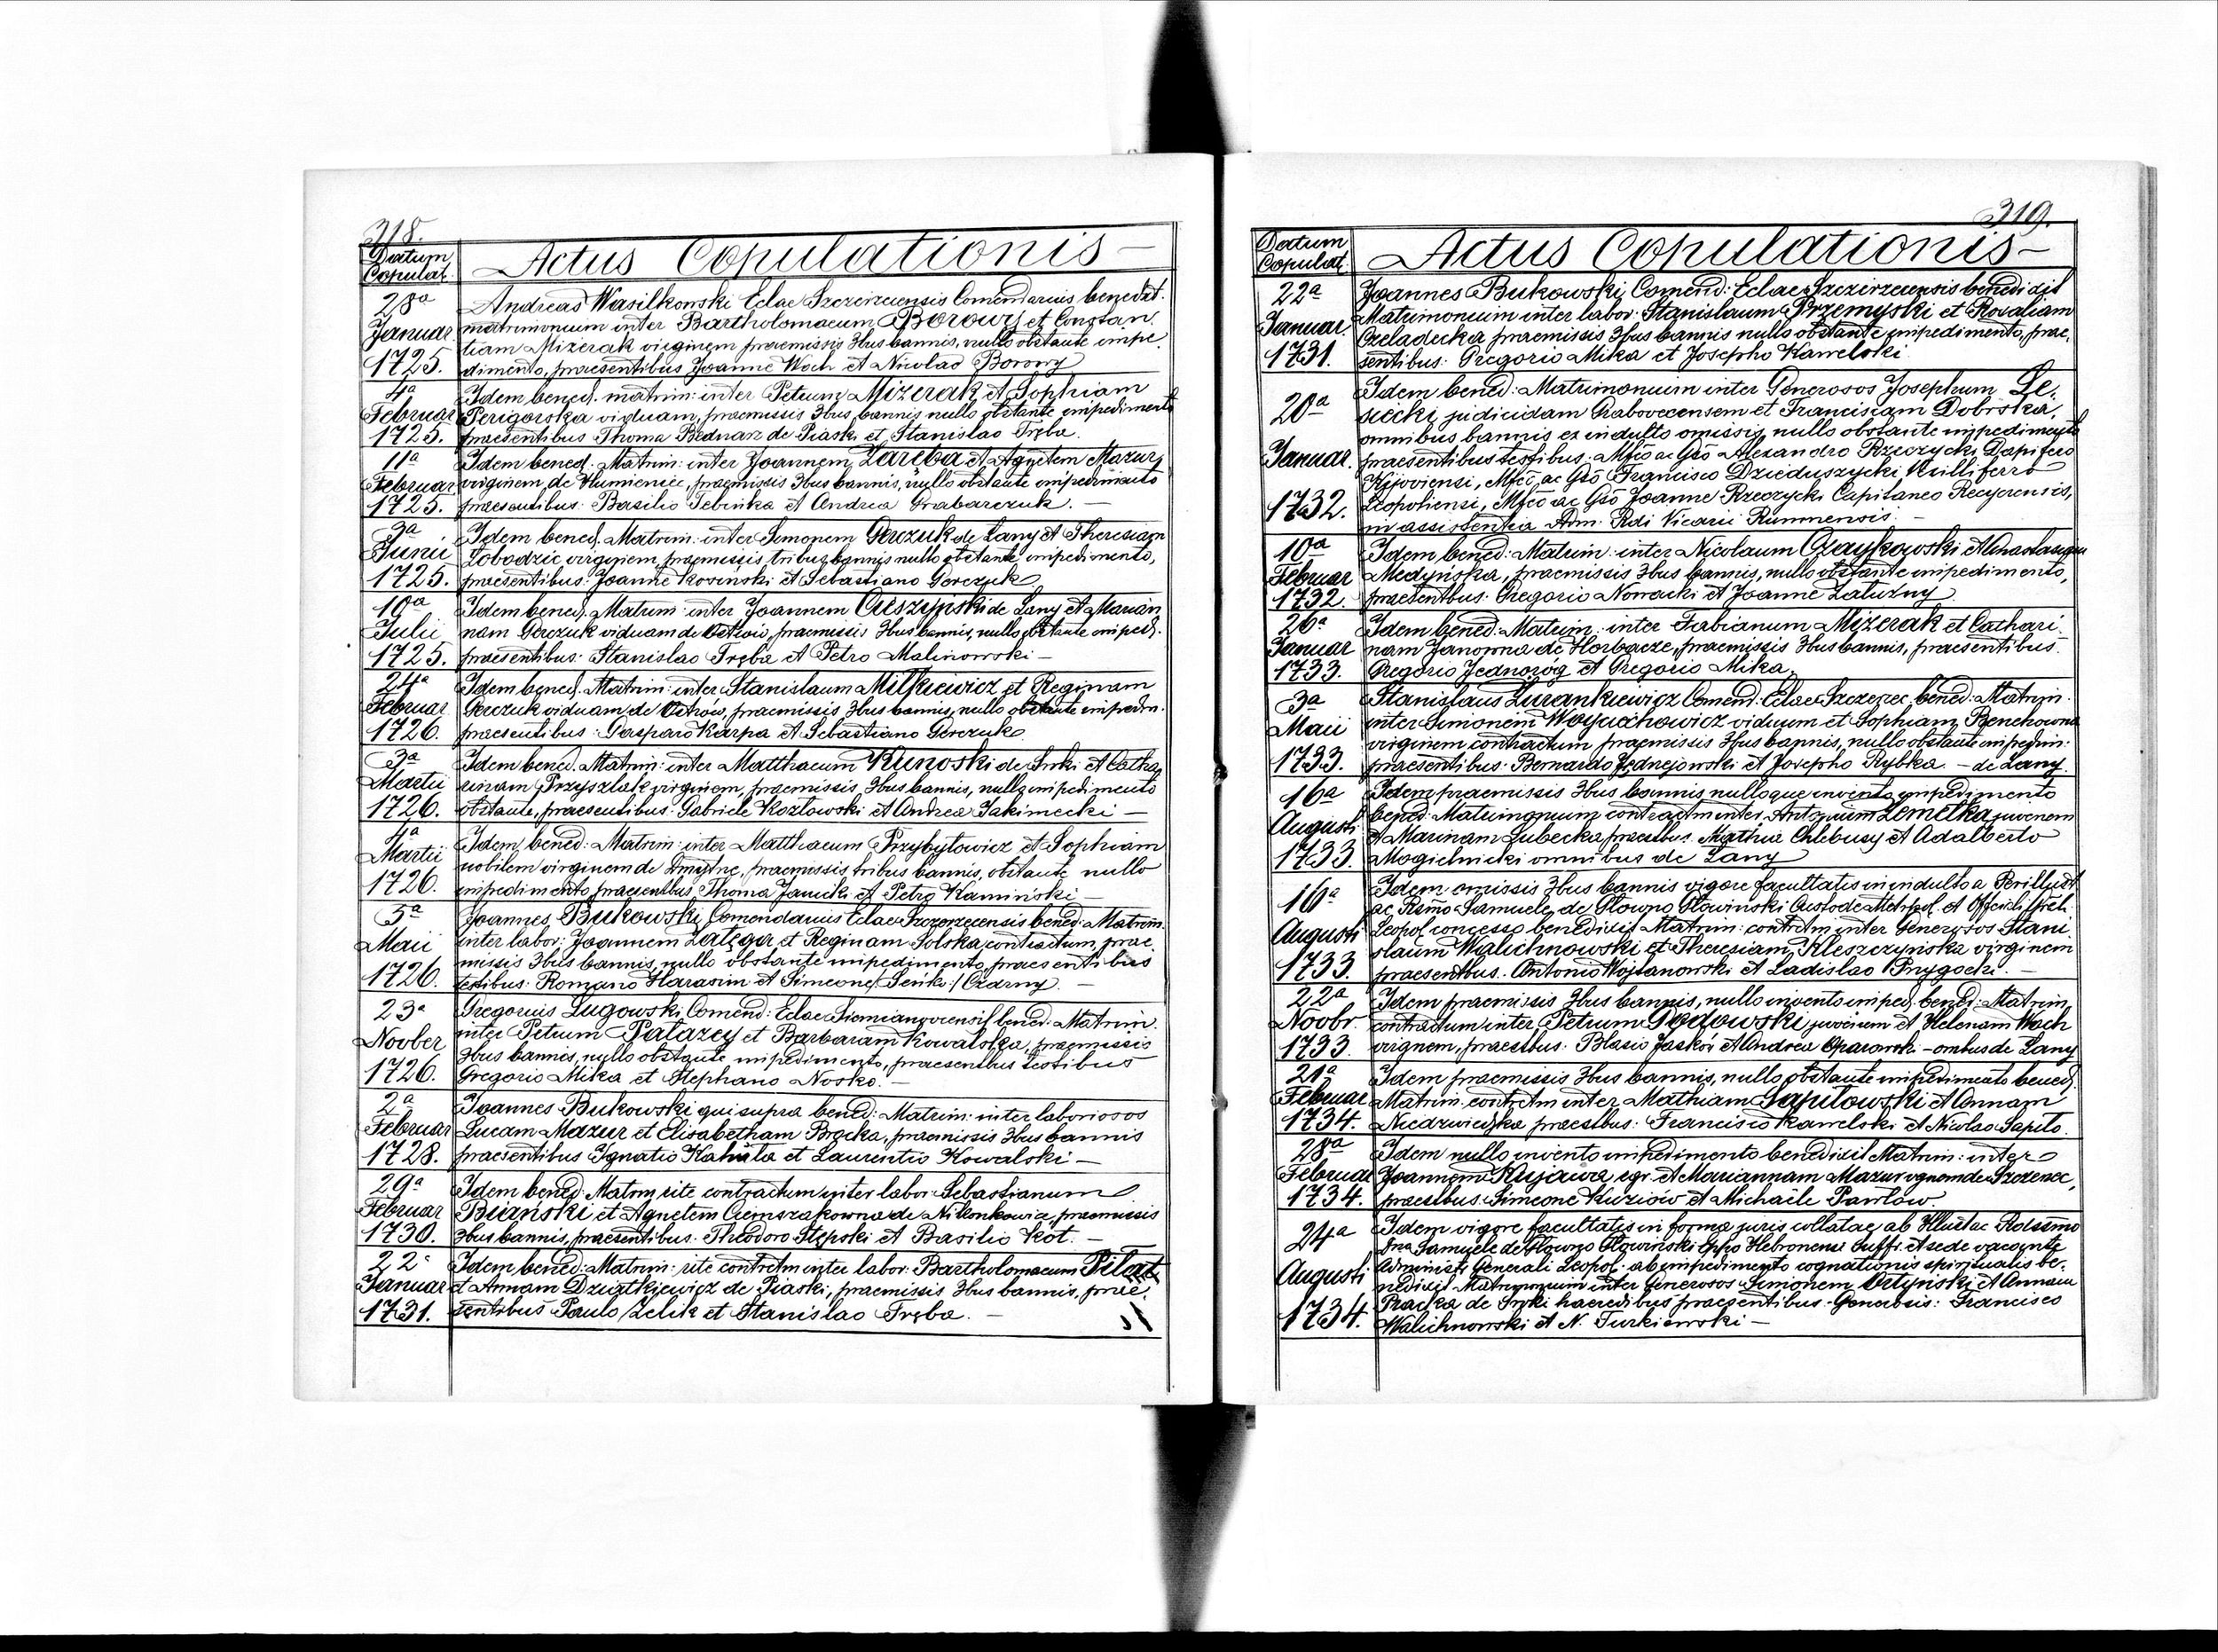 318.
Datum Copulat.
Actus Copulationis —
28a Januar 1725.
Andreas Wasilkowski Eclae Szczirzecensis Comendarius benedxt.
matrimonium inter Bartholomaeum Borowy et Constan
tiam Mizerak virginem praemissis 3bus bannis, nullo obstante impe
dimento, praesentibus Joanne Woch et Nicolao Borowy
4a Februar 1725.
Idem bened. matrim: inter Petrum Mizerak et Sophiam
Perigorska viduam, praemissis 3bus bannis nullo obstante impedimento
praesentibus Thoma Bednarz de Piaski et Stanislao Tręba.
11a Februar 1725.
Idem bened. Matrim: inter Joannem Zaręba et Agnetem Mazur,
virginem de Humieniec, praemissis 3bus bannis, nullo obstante impedimento
praesentibus: Basilio Tebinka et Andrea Grabarczuk. —
3a Junii 1725.
Idem bened. Matrim: inter Simonem Gerczuk de Łany et Theresiam
Łobodzic virginem, praemissis tribus bannis nullo obstante impedimento,
praesentibus: Joanne Rowiński et Sebastiano Gerczuk
10a Julii 1725.
Idem bened. Matrim: inter Joannem Cieszyński de Łany et Marian
nam Gerczuk viduam de Ostrow, praemissis 3bus bannis, nullo obstante imped.
praesentibus: Stanislao Tręba et Petro Malinowski —
24a Februar 1726.
Idem bened. Matrim: inter Stanislaum Milkiewicz et Reginam
Gerczuk viduam de Ostrow, praemissis 3bus bannis, nullo obstante impedim.
praesentibus: Gasparo Karpa et Sebastiano Gerczuk
3a Martii 1726.
Idem bened. Matrim: inter Matthaeum Kunoski de Sroki et Catha
rinam Przyszlak virginem, praemissis, 3bus bannis, nullo impedimento
obstante, praesentibus: Gabriele Kozłowski et Andrea Jakimecki —
4a Martii 1726.
Idem bened: Matrim: inter Matthaeum Przybyłowicz et Sophiam
nobilem virginem de Dmytrze, praemissis tribus bannis, obstante nullo
impedimento praesentbus Thoma Janicki et Petro Kamiński —
5a Maii 1726.
Joannes Bukowski Comendarius Eclae Szczyrzecensis bened: Matrim.
inter labor: Joannem Załęga et Reginam Solska contractum, prae
missis 3bus bannis, nullo obstante impedimento praesentibus
testibus: Romano Harasim et Simeone /: Seńko :/ Czarny. —
23a Noober 1726.
Gregorius Ługowski Comend: Eclae Siemianovcensis bened. Matrim.
inter Petrum Palazey et Barbaram Kowalska, praemissis
3bus bannis, nullo obstante impedimento, praesentbus testibus
Gregorio Mika et Stephano Nosko. —
2a Februar 1728.
Joannes Bukowski qui supra bened: Matrim: inter laboriosos
Lucam Mazur et Elisabetham Brocka, praemissis 3bus bannis
praesentibus Ignatio Kahuta et Laurentio Kowalski —
29a Februar 1730.
Idem bened. Matrim rite contractum inter labor: Sebastianum
Buzński et Agnetem Ciemszakowna de Nikonkowice, praemissis
3bus bannis, praesentibus: Theodoro Stępski et Basilio Kot. —
22a Januar 1731.
Idem bened: Matrim: rite contretm inter labor: Bartholomaeum Pilat
et Annam Dziątkiewicz de Piaski, praemissis 3bus bannis, prae
sentibus Paulo Zelik et Stanislao Tręba. —
319.
Datum Copulat.
Actus Copulationis —
22a Januar. 1731.
Joannes Bukowski Comend: Eclae Szczirzecensis benedixit
Matrimonium inter labor: Stanislaum Przemyski et Rosaliam
Czeladecka praemissis 3bus bannis nullo obstante impedimento, prae
sentibus: Gregorio Mika et Josepho Kawelski
20a Januar. 1732.
Idem bened: Matrimonium inter Generosos Josephum Le-
siecki judicidam Grabovecensem et Franciscam Dobrska,
omnibus bannis ex indulto omissis, nullo obstante impedimento
praesentibus testibus: Mfco ac Gso Alexandro Rzeczycki Dapifero
Kijoviensi, Mfco ac Gso Francisco Dzieduszycki Vexilliferro
Leopoliensi, Mfco ac Gso Joanne Rzeczycki Capitaneo Recycensis,
in assistentia Adm. Rdi Vicarii Rumnensis. —
10a Februar 1732.
Idem bened: Matrim: inter Nicolaum Czaykowski et Anastasiam
Medyńska, praemissis 3bus bannis, nullo obstante impedimento,
praesentbus: Gregorio Nowacki et Joanne Załuzny
26a Januar 1733.
Idem bened: Matrim: inter Fabianum Mizerak et Cathari
nam Janowna de Horbacze, praemissis 3bus bannis, praesentibus:
Gregorio Jednoróg et Gregorio Mika.
3a Maii 1733.
Stanislaus Żurankiewicz Comend: Eclae Szczerzec. bened: Matrim.
inter Simonem Woyciechowicz viduum et Sophiam Benchowna
virginem contractum praemissis 3bus bannis, nullo obstante impedim:
praesentibus: Bernardo Jędrejowski et Josepho Rybka. — de Łany.
16a Augusti 1733.
Idem praemissis 3bus bannis nulloque invento impedimento
bened: Matrimonium contractm inter Antonium Zemełka juvenem
et Marinam Lubecka praesentbus. Mathia Chlebusy et Adalberto
Mogielnicki omnibus de Łany
16a Augusti 1733.
Idem omissis 3bus bannis vigore facultatis in indulto a Perillustri
ac Rsmo Samuele de Głowno Głowiński Custode Metropol. et Officiali Grali
Leopol. concesso benedixit Matrim: contretm inter Generosos Stani
slaum Walichnowski et Theresiam Kleszczyńska virginem
praesentbus. Antonio Wojtanowski et Ladislao Przygocki. —
22a Noobr 1733.
Idem praemissis 3bus bannis, nullo invento imped. bened: Matrim.
contractum inter Petrum Godowski juvenem et Helenam Woch
virginem, praesentbus: Blasio Jaskór et Andrea Oparowski — ombus de Łany
21a Februar 1734.
Idem praemissis 3bus bannis, nullo obstante impedimento bened.
Matrim: contretm inter Mathiam Saputowski et Annam
Niedzwiedzka praestbus: Francisco Kawelski et Nicolao Sapito.
28a Februar 1734.
Idem nullo invento impedimento benedixit Matrim: inter
Joannem Kujawa egr. et Mariannam Mazur vgnem de Szczerzec,
praestbus: Simeone Kuziow et Michaele Pawlow
24a Augusti 1734.
Idem vigore facultatis in forma juris collatae ab Illustr ac Rdssmo
Dno Samuele de Głowno Głowiński Eppo Hebronensi Suffr. et sede vacante
Administr Generali Leopol: ab impedimento cognationis spiritualis be-
nedixit Matrimonium inter Generosos Simonem Ortyński et Annam
Pracka de Sroki haeredibus praesentibus. Generosis: Francisco
Walichnowski et N. Turkiewski —